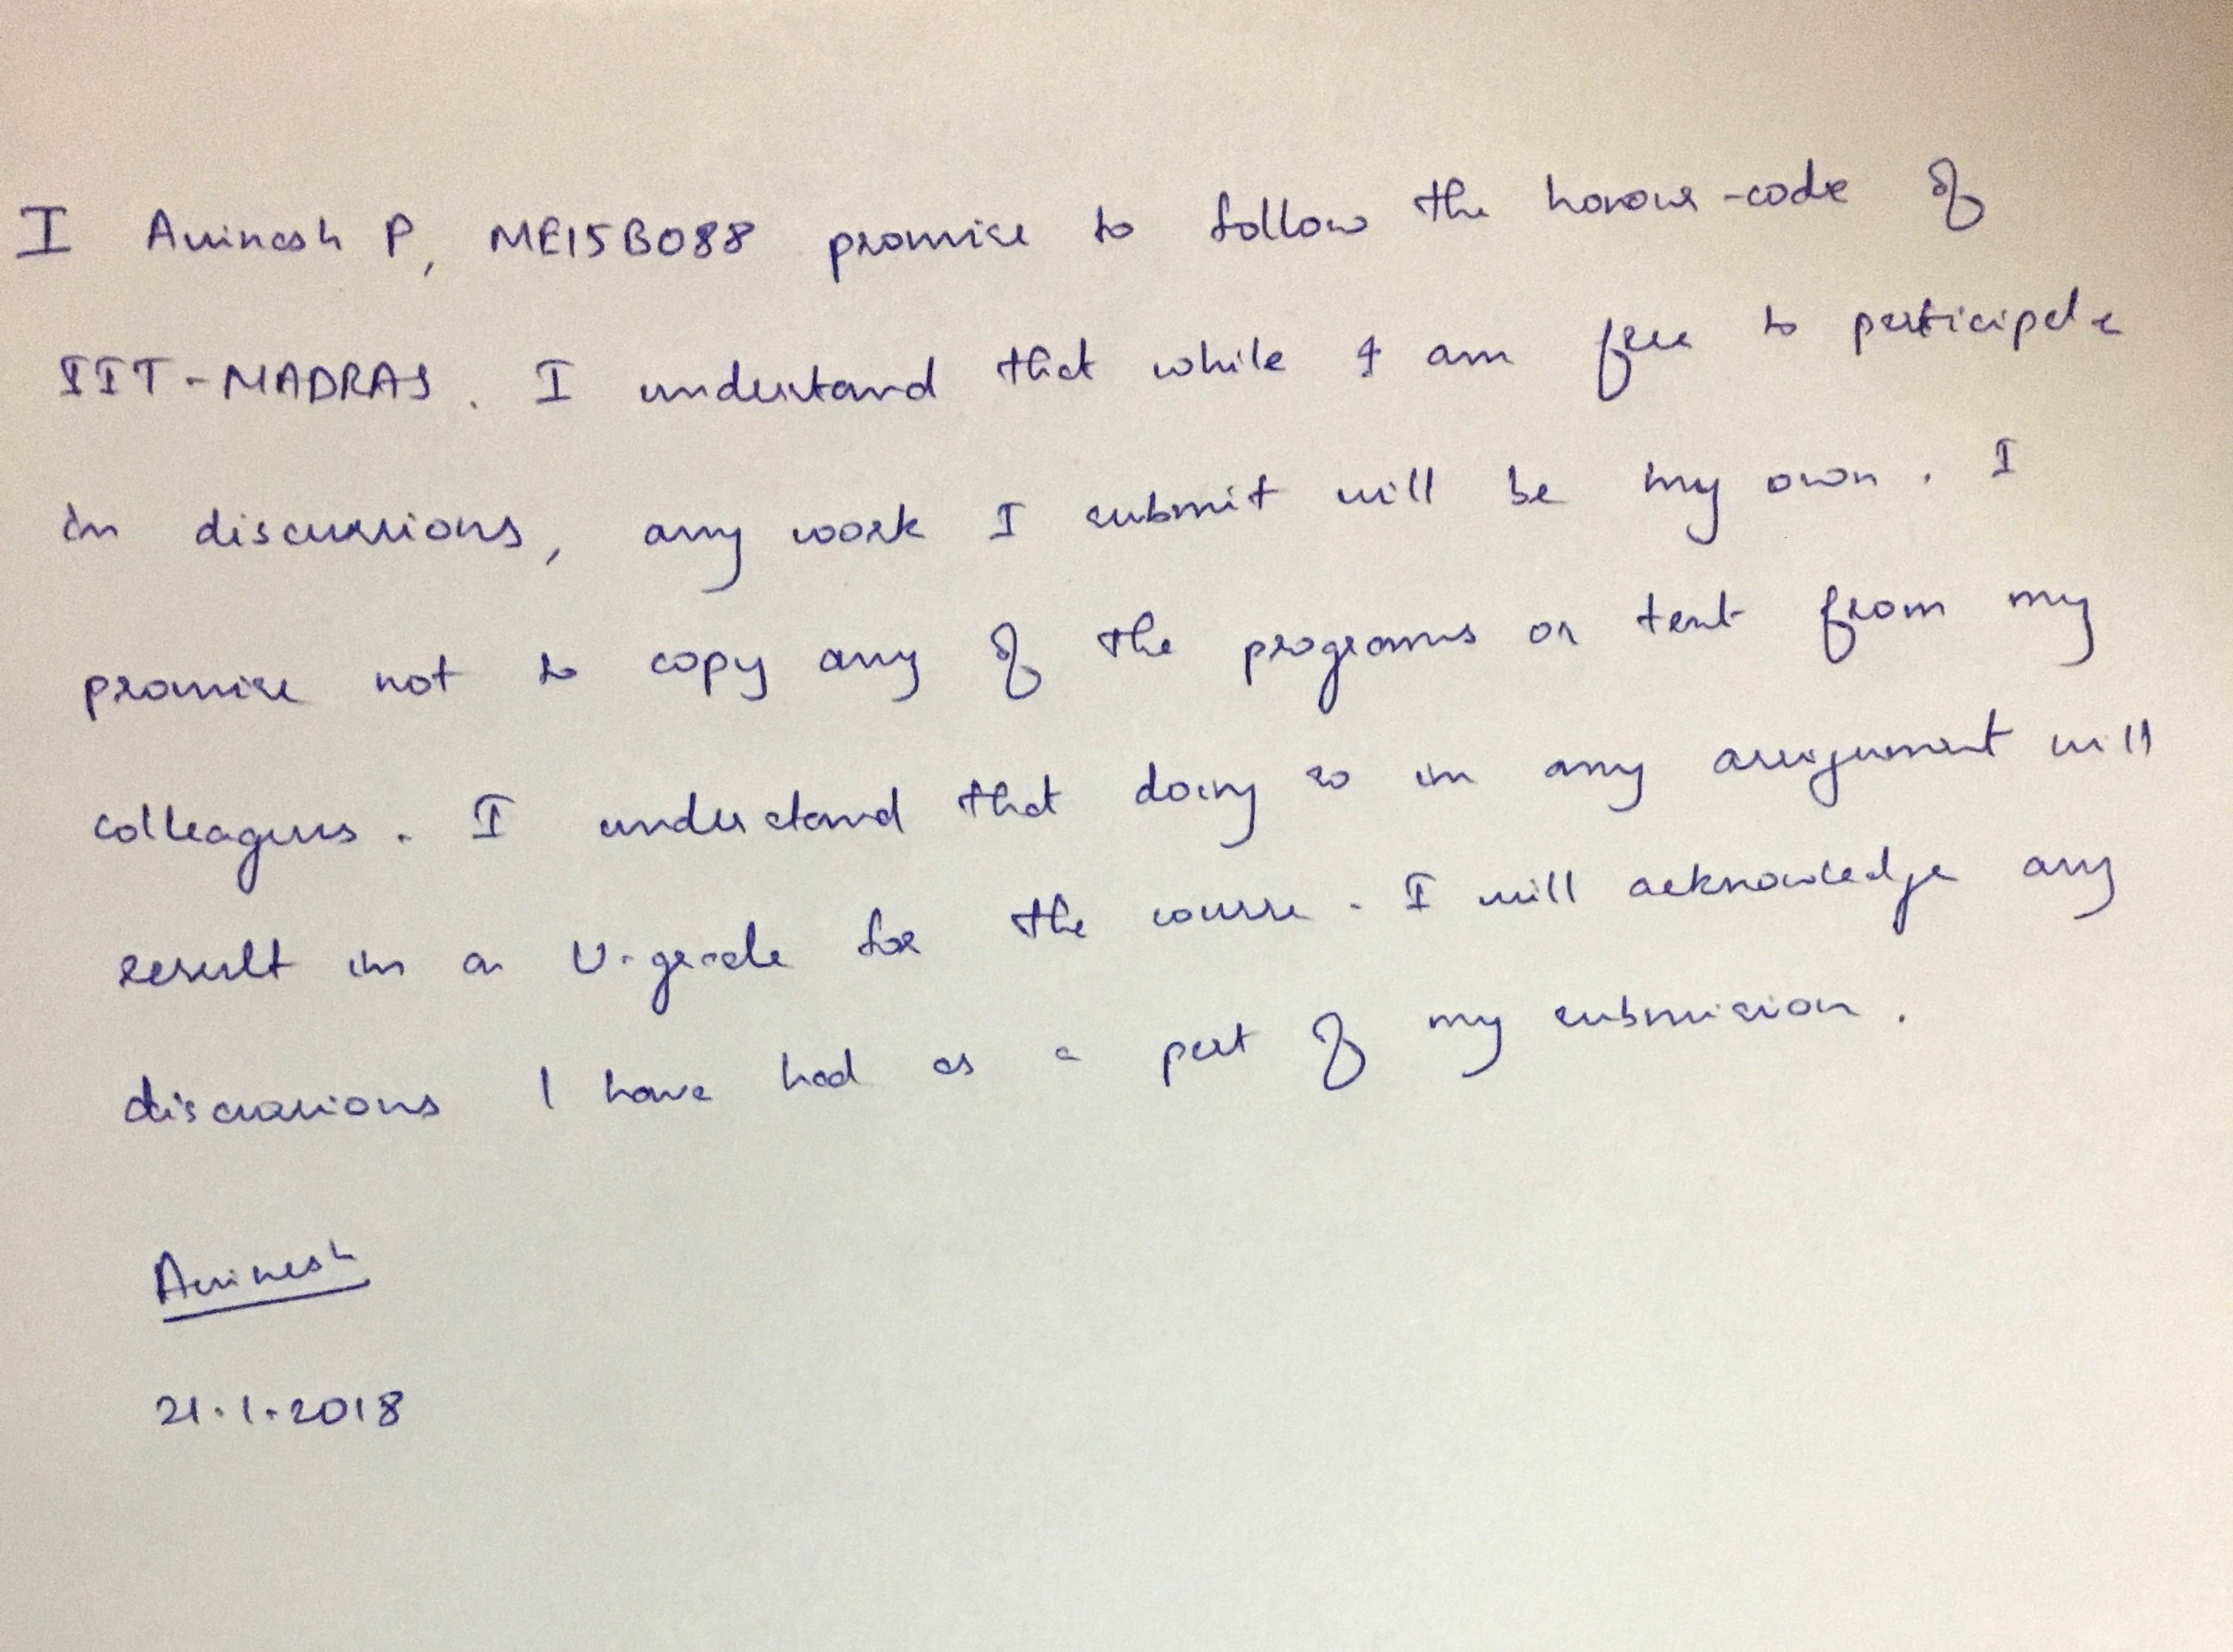 I Avinash P, ME15B088 promise to follow the honour-code of
IIT-MADRAS. I understand that while I am free to participate
in discussions, any work I submit will be my own. I
promise not to copy any of the programs or text from my
colleagues. I understand that doing so in any assignment will
result in a U-grade for the course. I will acknowledge any
discussions I have had as a part of my submission.
Avinash
21.1.2018